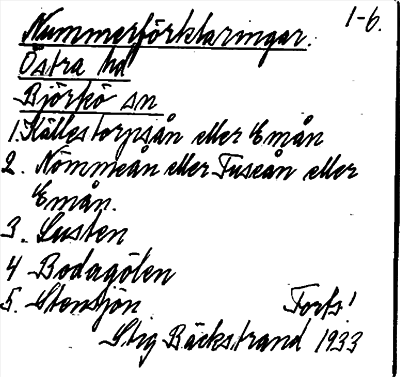 1-6.
Nummerförklaringar.
Östra hd
Björkö sn
1. Källestorpsån eller Emån
2. Nömmeån eller Fuseån eller
Emån.
3. Susten
4 Bodagölen
5. Stensjön Forts!
Stig Bäckstrand 1933